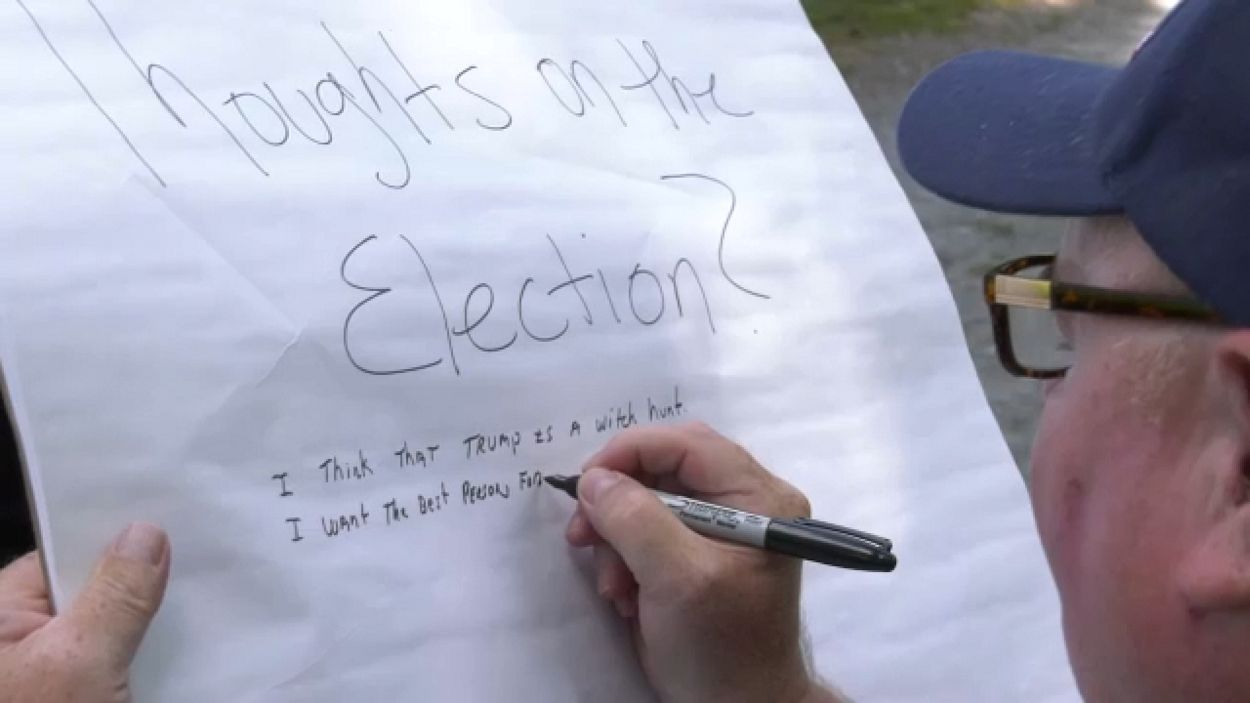 Thoughts on the
Election?
I Think ThAT TRUMP IS A witch hunt.
I wANT The Best PERSON FOR